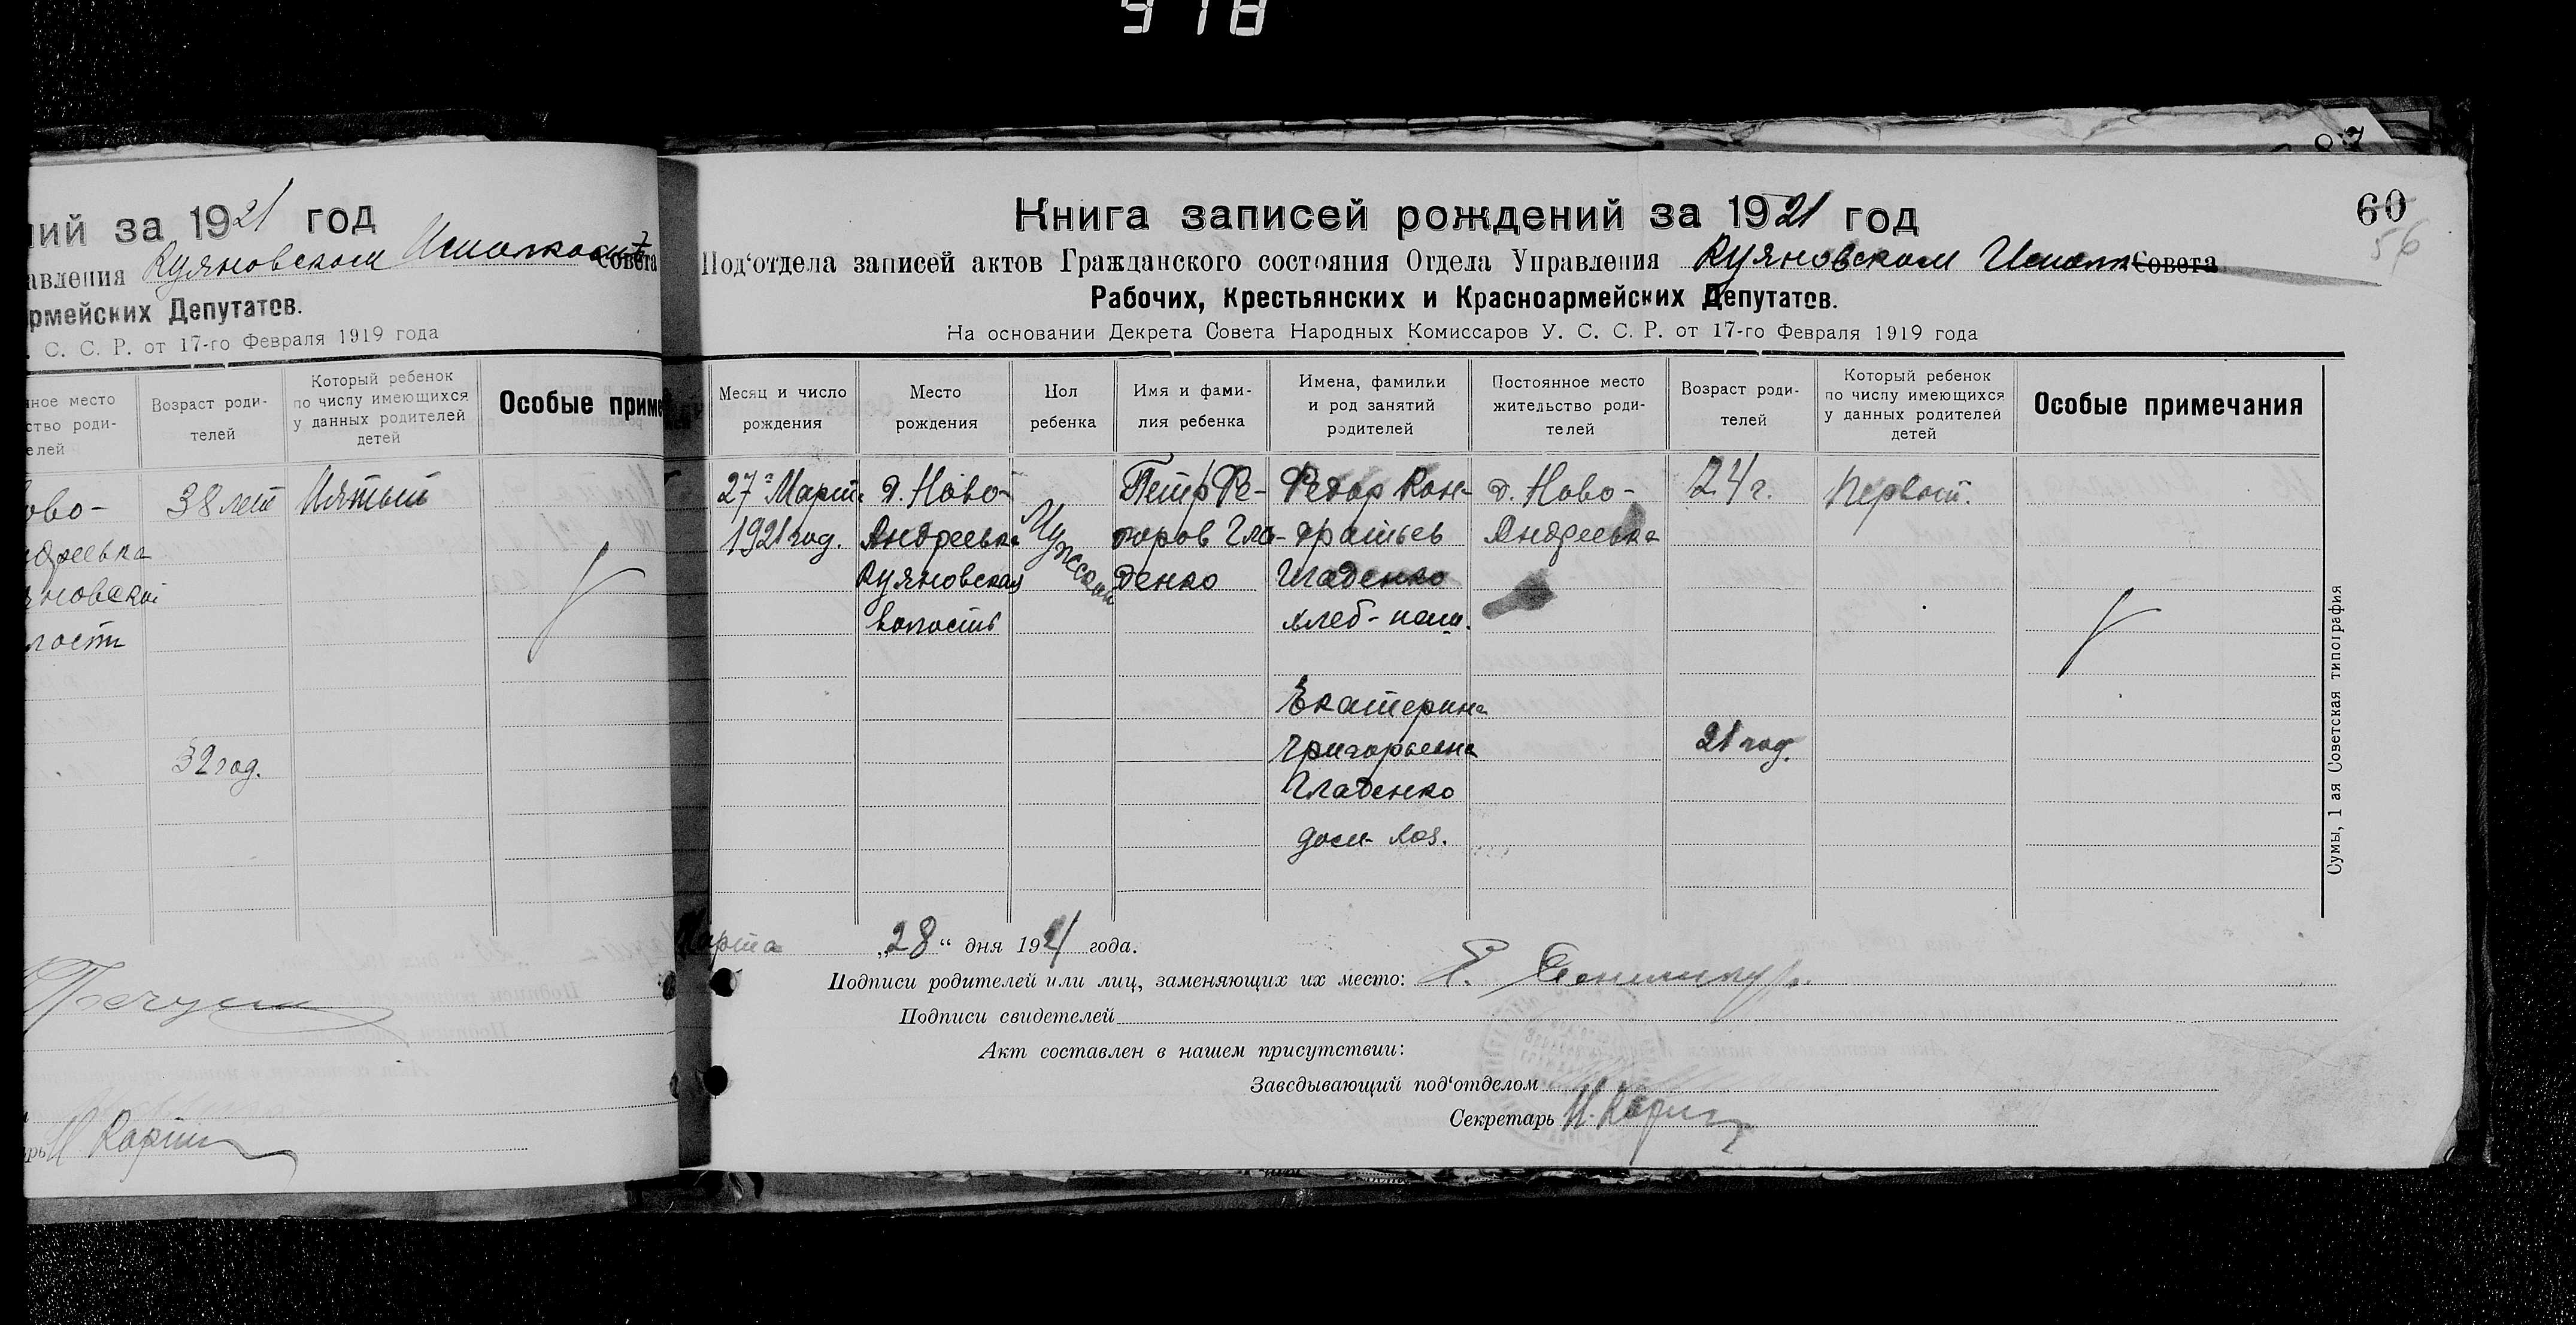 918
ний за 1921 год
авления Куяновском Исполкоме Совета
рмейских Депутатов.
. С. С. Р. от 17-го Февраля 1919 года
ное место
ство роди-
елей
Возраст роди-
телей
Который ребенок
по числу имеющихся
у данных родителей
детей
Особые приме
ово-
ндреевка
яновской
лости
38 лет
32 год.
Пятый
рь
60
56
Книга записей рождений за 1921 год
Под'отдела записей актов Гражданского состояния Отдела Управления Куяновском Исполк Совета
Рабочих, Крестьянских и Красноармейских Депутатов.
На основании Декрета Совета Народных Комиссаров У. С. С. Р. от 17-го Февраля 1919 года
Месяц и число
рождения
Место
рождения
Пол
ребенка
Имя и фами-
лия ребенка
Имена, фамилии
и род занятий
родителей
Постоянное место
жительство роди-
телей
Возраст роди-
телей
Который ребенок
по числу имеющихся
у данных родителей
детей
Особые примечания
27го Март.
1921 год.
д. Ново-
Андреевка
Куяновская
волость
Мужеский
Петр Фе-
доров Гла-
денко
Федор Кон-
дратьев
Гладенко
хлеб-паш.
Екатерина
Григорьевна
Гладенко
дом. хоз.
д. Ново-
Андреевка
24 г.
21 год.
Первый.
Марта „28“ дня 1921 года.
Подписи родителей или лиц, заменяющих их место:
Подписи свидетелей
Акт составлен в нашем присутствии:
Заведывающий под'отделом
Секретарь
Сумы, 1 ая Советская типография